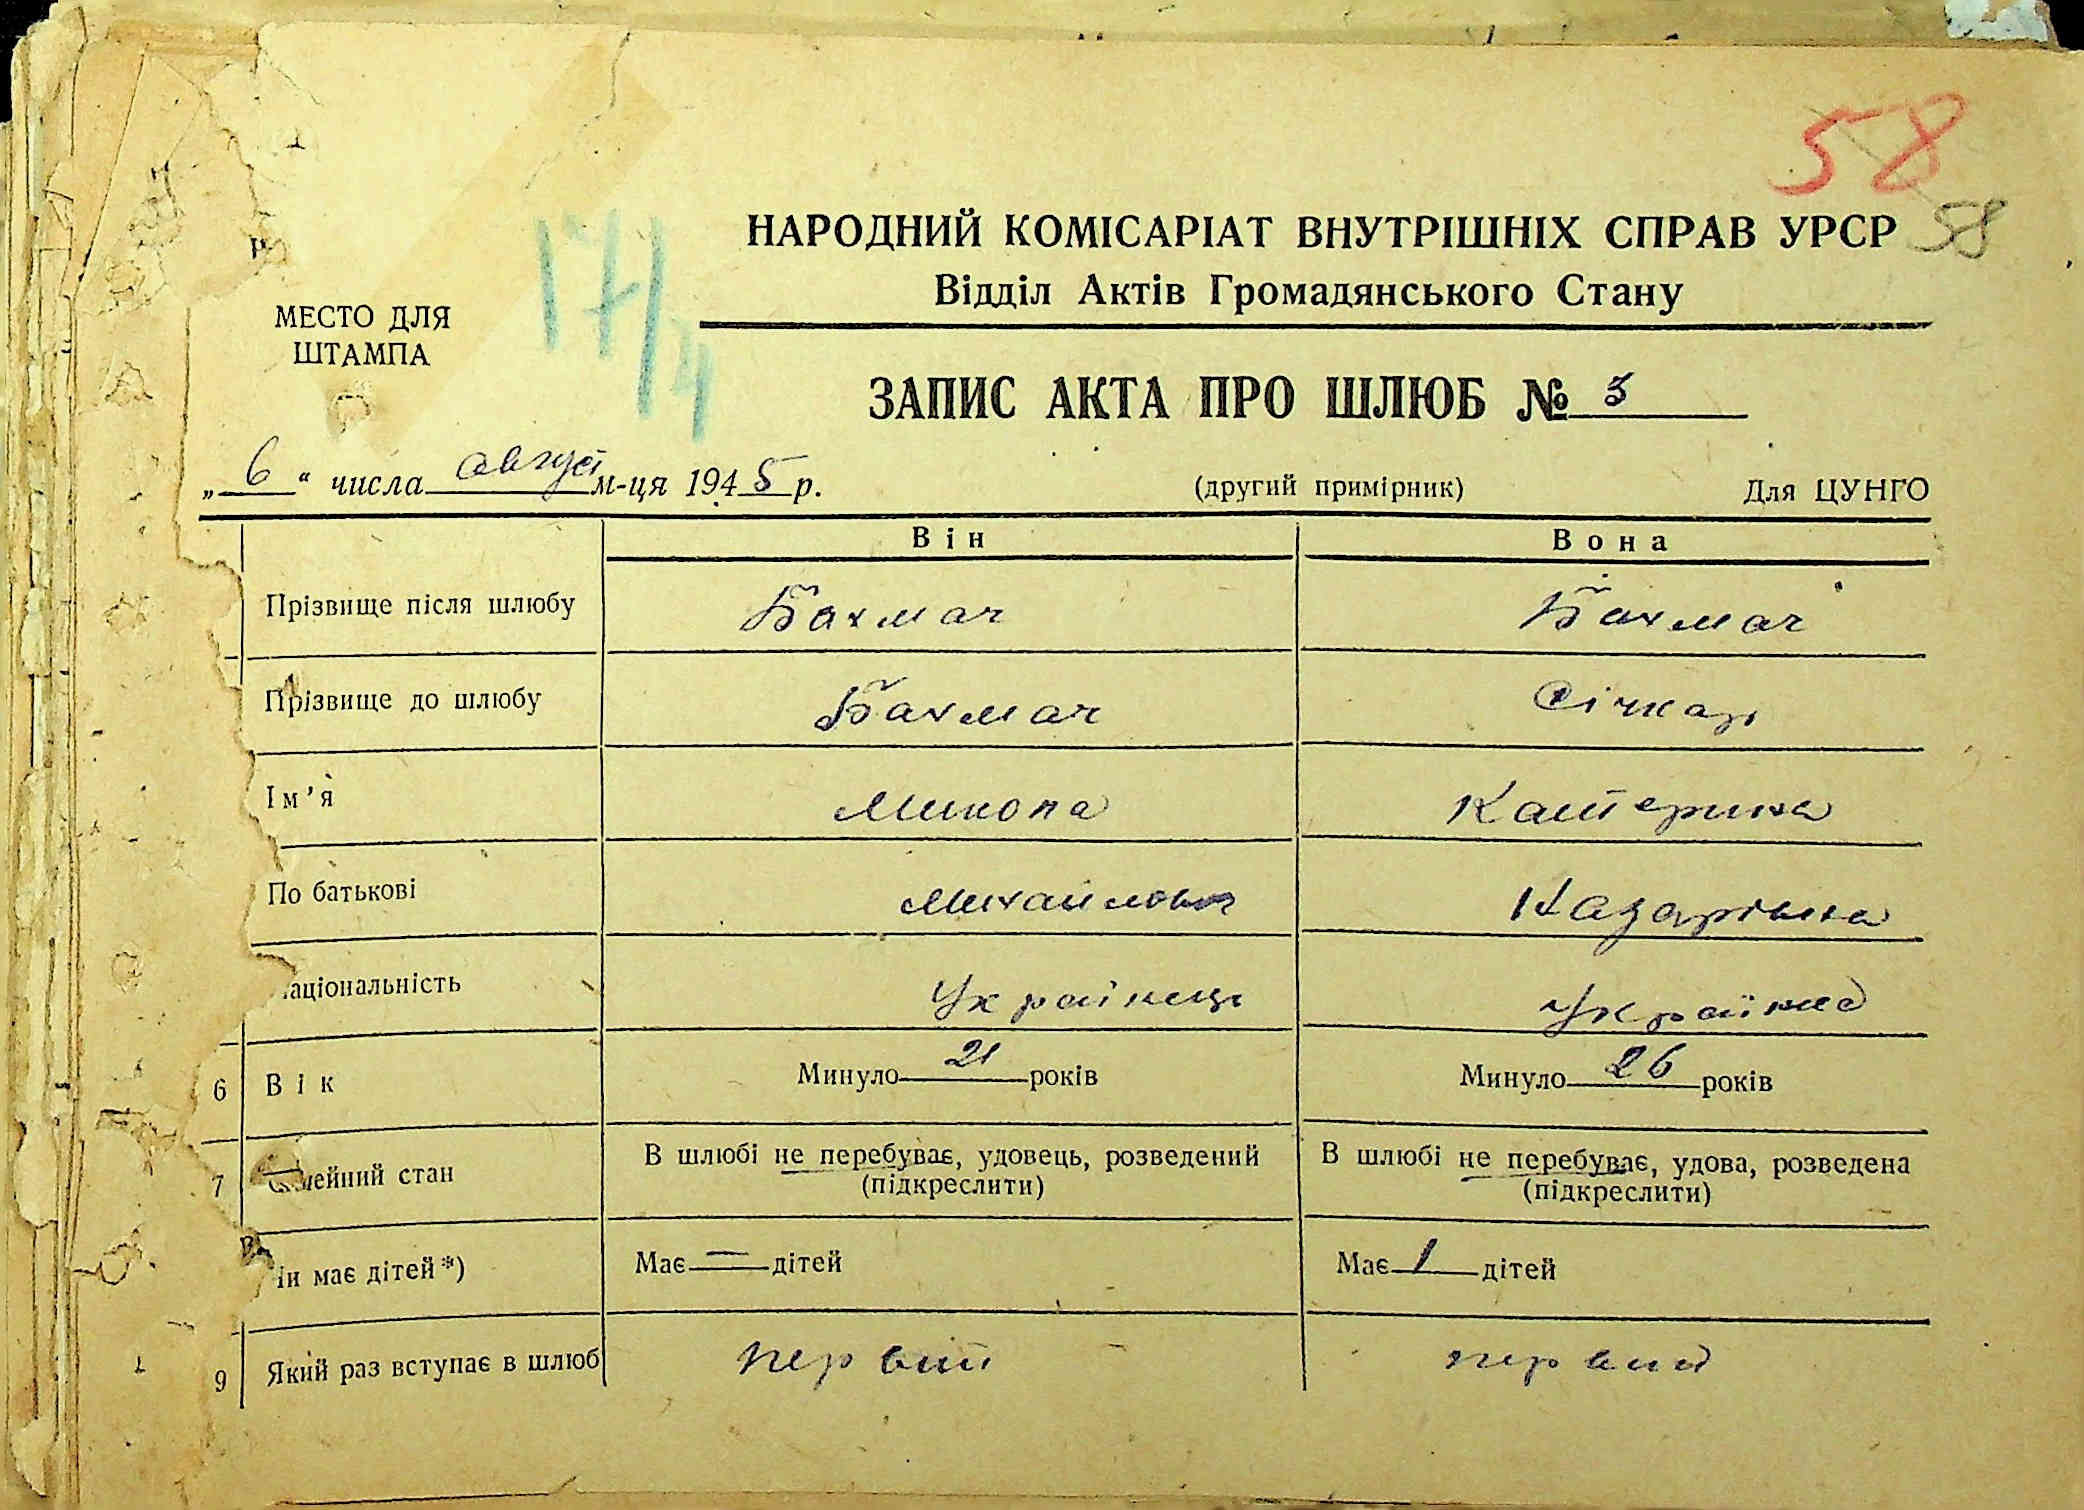 58
НАРОДНИЙ КОМІСАРІАТ ВНУТРІШНІХ СПРАВ УРСР 58
Відділ Актів Громадянського Стану
МЕСТО ДЛЯ
ШТАМПА
17/4
ЗАПИС АКТА ПРО ШЛЮБ № 3
„6“ числа август м-ця 1945 р. (другий примірник) Для ЦУНГО
Він Вона
Прізвище після шлюбу Бахмач Бахмач
Прізвище до шлюбу Бахмач Січкарь
Ім'я Микола Катерина
По батькові Михайлович Назарівна
аціональність Українець Українка
6 Вік Минуло 21 років Минуло 26 років
7 мейний стан В шлюбі не перебуває, удовець, розведений В шлюбі не перебуває, удова, розведена
(підкреслити) (підкреслити)
ін має дітей*) Має — дітей Має 1 дітей
9 Який раз вступає в шлюб первий первий